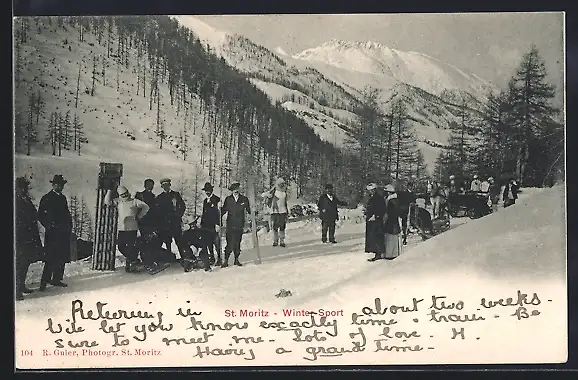 St. Moritz - Winter-Sport
Returning in about two weeks -
Will let you know exactly time - train - Be
sure to meet me - Lots of love. H.
Having a grand time -
104 R. Guler, Photogr. St. Moritz